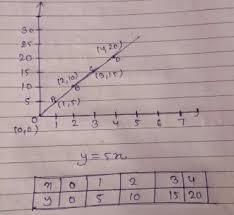 30
25
(4,20)
20 D
15 (2,10) C
10 B (3,15)
5 A (1,5)
(0,0) 0 1 2 3 4 5 6 7
y = 5x
x 0 1 2 3 4
y 0 5 10 15 20